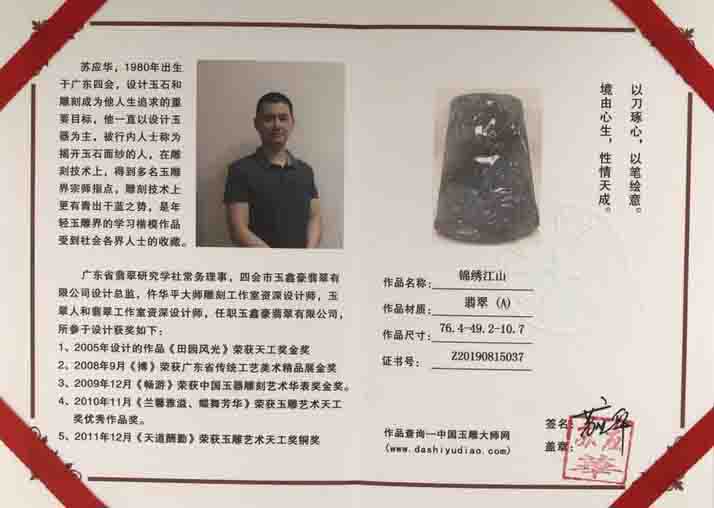 苏应华，1980年出生
于广东四会，设计玉石和
雕刻成为他人生追求的重
要目标，他一直以设计玉
器为主，被行内人士称为
揭开玉石面纱的人，在雕
刻技术上，得到多名玉雕
界宗师指点，雕刻技术上
更有青出于蓝之势，是年
轻玉雕界的学习楷模作品
受到社会各界人士的收藏。
广东省翡翠研究学社常务理事，四会市玉鑫豪翡翠有
限公司设计总监，仵华平大师雕刻工作室资深设计师，玉
翠人和翡翠工作室资深设计师，任职玉鑫豪翡翠有限公司，
所参于设计获奖如下：
1、2005年设计的作品《田园风光》荣获天工奖金奖
2、2008年9月《博》荣获广东省传统工艺美术精品展金奖
3、2009年12月《畅游》荣获中国玉器雕刻艺术华表奖金奖。
4、2010年11月《兰馨雅溢、蝶舞芳华》荣获玉雕艺术天工
奖优秀作品奖。
5、2011年12月《天道酬勤》荣获玉雕艺术天工奖铜奖
以刀琢心，以笔绘意。
境由心生，性情天成。
作品名称：锦绣江山
作品材质：翡翠（A）
作品尺寸：76.4-49.2-10.7
证书号：Z20190815037
作品查询—中国玉雕大师网
(www.dashiyudiao.com)
签名：
盖章：